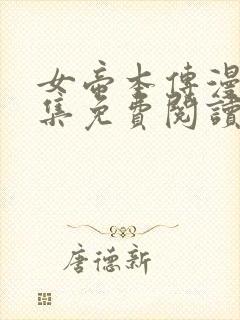 女帝本傳漫
集免費閱讀
唐德新